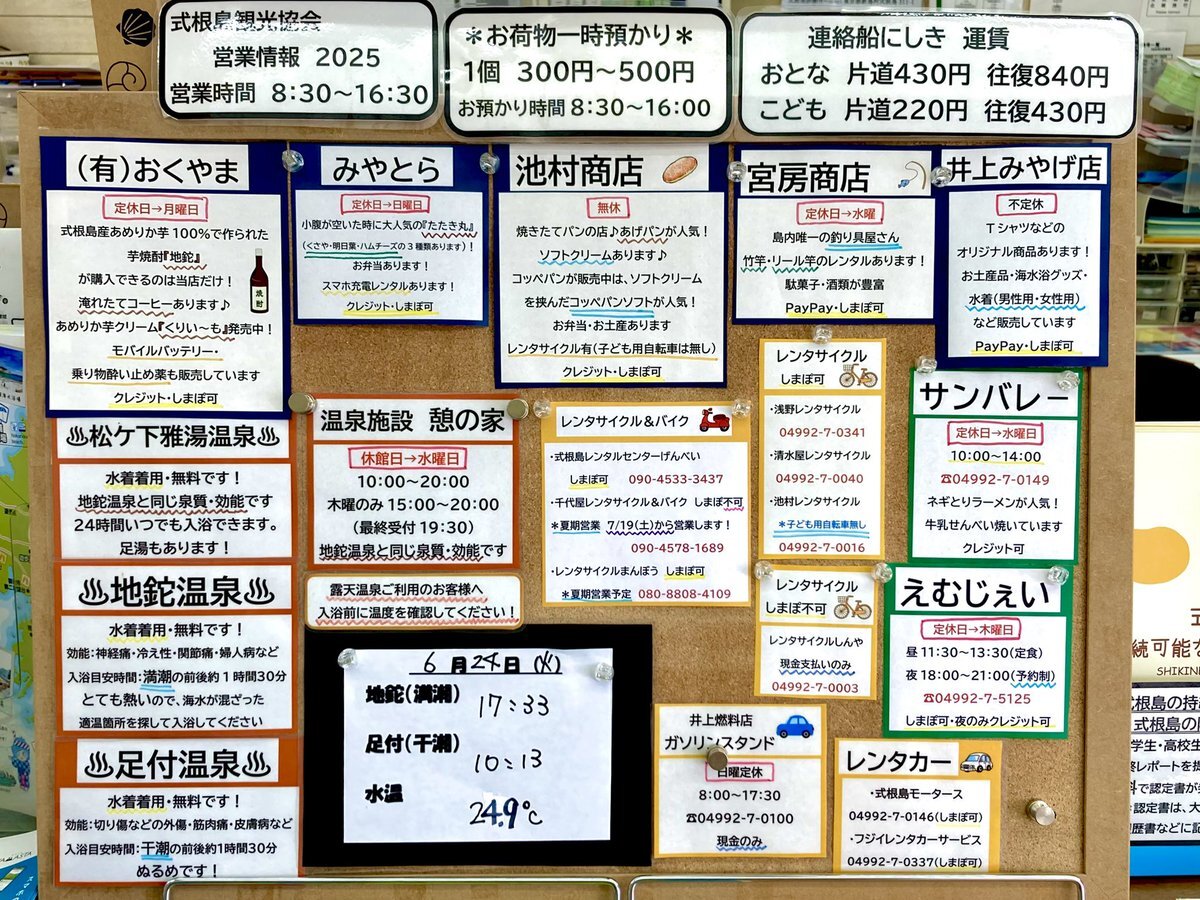 式根島観光協会
営業情報 2025
営業時間 8:30～16:30
＊お荷物一時預かり＊
1個 300円～500円
お預かり時間 8:30～16:00
連絡船にしき 運賃
おとな 片道430円 往復840円
こども 片道220円 往復430円
(有)おくやま
定休日→月曜日
式根島産あめりか芋100%で作られた
芋焼酎『地鉈』
が購入できるのは当店だけ！
焼酎
淹れたてコーヒーあります♪
あめりか芋クリーム『くりぃ～も』発売中！
モバイルバッテリー・
乗り物酔い止め薬も販売しています
クレジット・しまぽ可
みやとら
定休日→日曜日
小腹が空いた時に大人気の『たたき丸』
(くさや・明日葉・ハムチーズの3種類あります)！
お弁当あります！
スマホ充電レンタルあります！
クレジット・しまぽ可
池村商店
無休
焼きたてパンの店♪あげパンが人気！
ソフトクリームあります♪
コッペパンが販売中は、ソフトクリーム
を挟んだコッペパンソフトが人気！
お弁当・お土産あります
レンタサイクル有(子ども用自転車は無し)
クレジット・しまぽ可
宮房商店
定休日→水曜
島内唯一の釣り具屋さん
竹竿・リール竿のレンタルあります！
駄菓子・酒類が豊富
PayPay・しまぽ可
井上みやげ店
不定休
Tシャツなどの
オリジナル商品あります！
お土産品・海水浴グッズ・
水着(男性用・女性用)
など販売しています
PayPay・しまぽ可
♨松ケ下雅湯温泉♨
水着着用・無料です！
地鉈温泉と同じ泉質・効能です
24時間いつでも入浴できます。
足湯もあります！
温泉施設 憩の家
休館日→水曜日
10:00～20:00
木曜のみ 15:00～20:00
(最終受付 19:30)
地鉈温泉と同じ泉質・効能です
レンタサイクル＆バイク
・式根島レンタルセンターげんべい
しまぽ可 090-4533-3437
・千代屋レンタサイクル＆バイク しまぽ不可
＊夏期営業 7/19(土)から営業します！
090-4578-1689
・レンタサイクルまんぼう しまぽ可
＊夏期営業予定 080-8808-4109
レンタサイクル
しまぽ可
・浅野レンタサイクル
04992-7-0341
・清水屋レンタサイクル
04992-7-0040
・池村レンタサイクル
＊子ども用自転車無し
04992-7-0016
サンバレー
定休日→水曜日
10:00～14:00
☎04992-7-0149
ネギとりラーメンが人気！
牛乳せんべい焼いています
クレジット可
♨地鉈温泉♨
水着着用・無料です！
効能:神経痛・冷え性・関節痛・婦人病など
入浴目安時間:満潮の前後約1時間30分
とても熱いので、海水が混ざった
適温箇所を探して入浴してください
露天温泉ご利用のお客様へ
入浴前に温度を確認してください！
6月24日(火)
地鉈(満潮)
17:33
足付(干潮)
10:13
水温
24.9℃
レンタサイクル
しまぽ不可
レンタサイクルしんや
現金支払いのみ
04992-7-0003
えむじぇい
定休日→木曜日
昼 11:30～13:30(定食)
夜 18:00～21:00(予約制)
☎04992-7-5125
しまぽ可・夜のみクレジット可
♨足付温泉♨
水着着用・無料です！
効能:切り傷などの外傷・筋肉痛・皮膚病など
入浴目安時間:干潮の前後約1時間30分
ぬるめです！
井上燃料店
ガソリンスタンド
日曜定休
8:00～17:30
☎04992-7-0100
現金のみ
レンタカー
・式根島モータース
04992-7-0146(しまぽ可)
・フジイレンタカーサービス
04992-7-0337(しまぽ可)
続可能な
SHIKINE
式根島の持
式根島の
学生・高校生
レポートを提
で認定書が
認定書は、大
歴書などに記